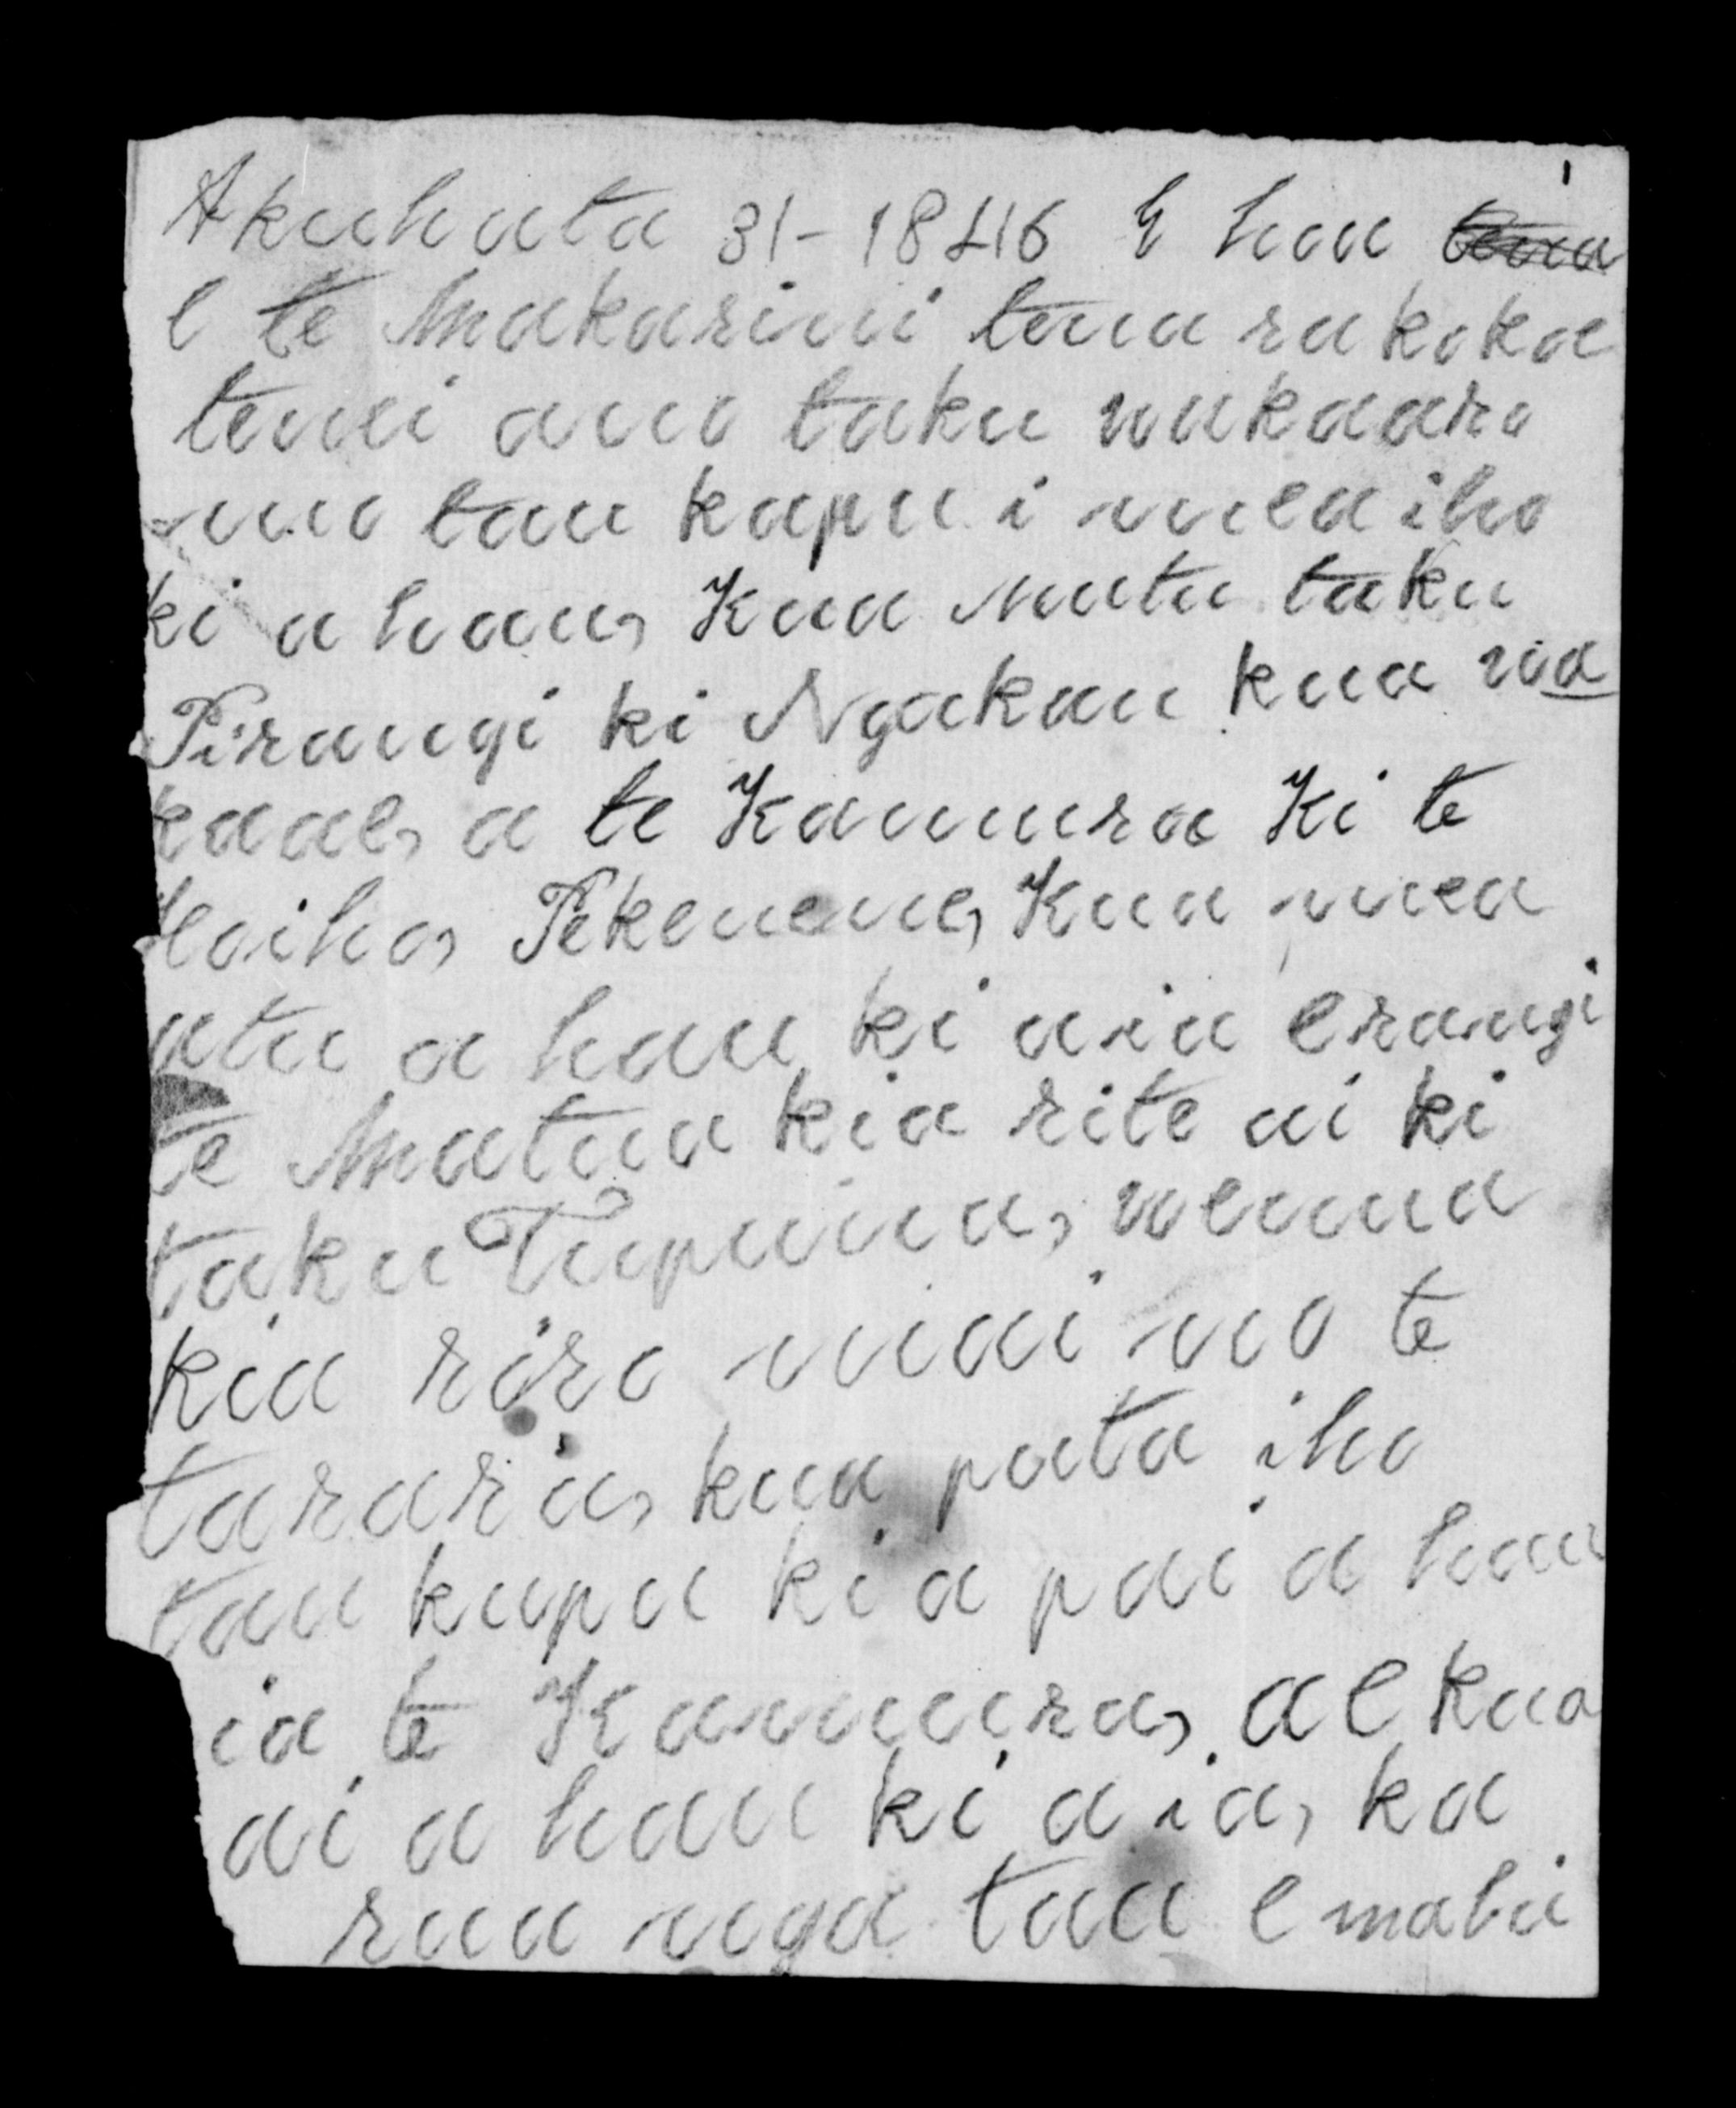 Akuhata 31-1846 E hoa tena
e te Makarini tena ra ko koe
tenei ano taku wakaaro
mo tau kupu i mea iho
ki a hau, Kua mutu taku
Pirangi ki Ngakau kua wa
kaae, a te Kamura Ki te
Hoiho, Pekenene, Kua mea
atu a hau ki aia erangi
te Matua kia rite ai ki
taku Tupuna, weuna
kia riro mai mo te
tarara, kua pata iho
tau kupu ki a pai a hau
ia te Kamura, ae kua
ai a hau ki a ia, ka
rua nga tau e mahi